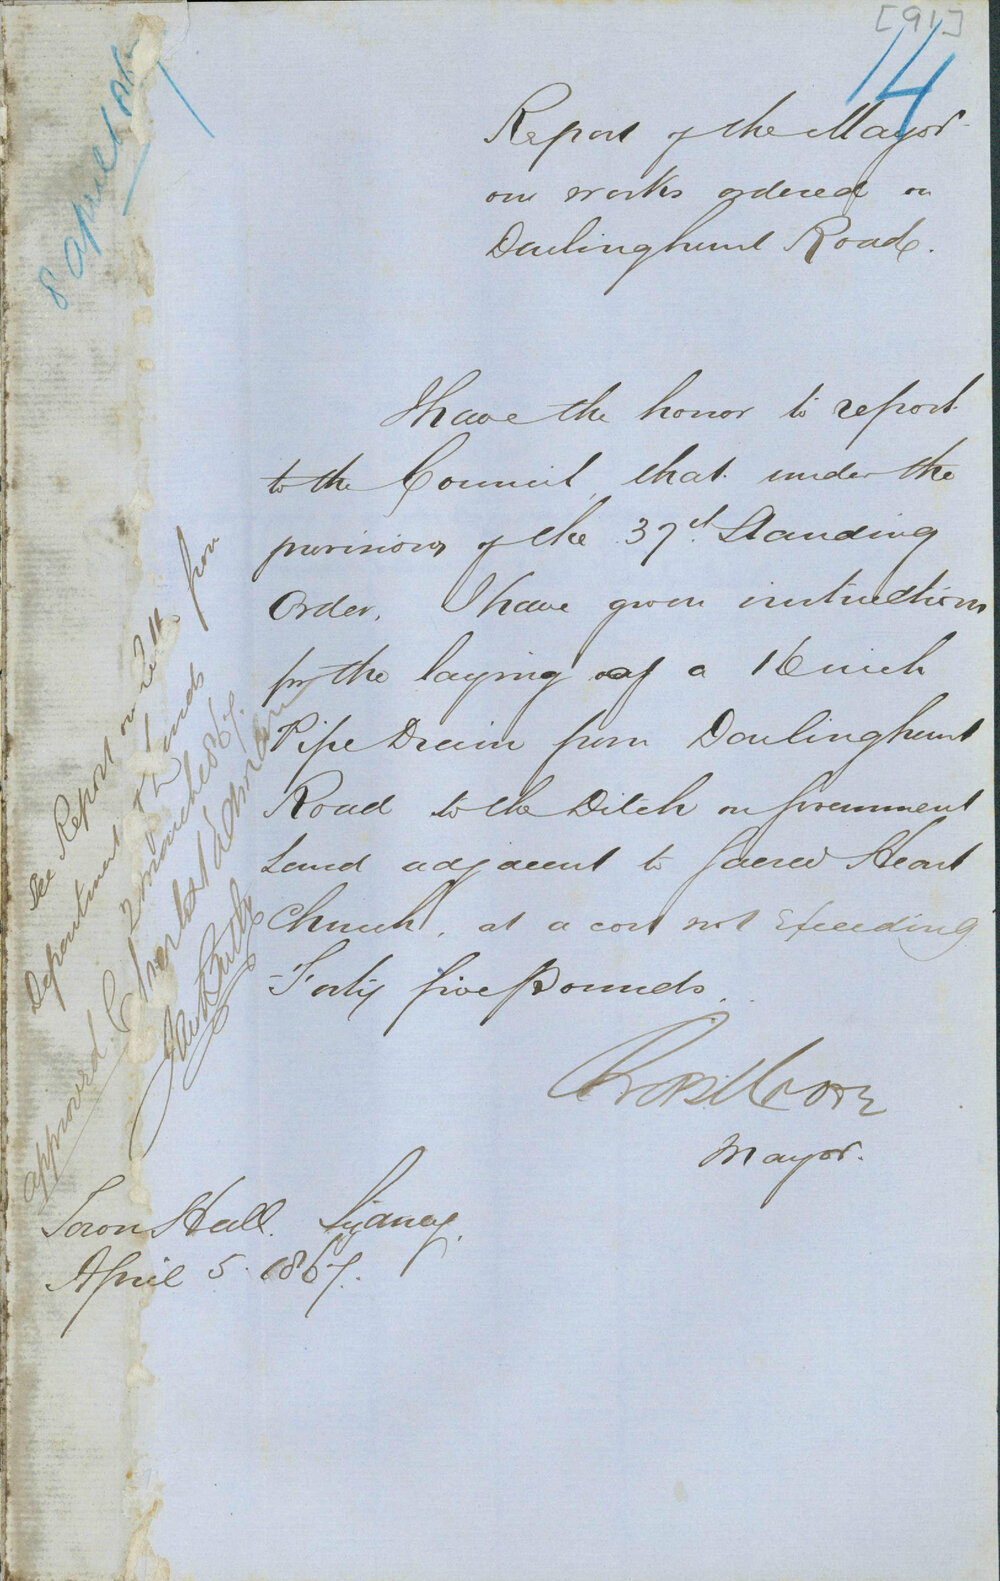 [91]
14
8 April
Report of the Mayor
on works ordered on
Darlinghurst Road.
I have the honor to report
to the Council, that under the
provisions of the 37th Standing
Order, I have given instructions
for the laying of a 16 inch
Pipe Drain from Darlinghurst
Road to the Ditch on Government
Land adjacent to Sacred Heart
Church, at a cost not Exceeding
Forty five Pounds.
Mayor.
Town Hall. Sydney.
April 5. 1867.
See Report on
Department
2 March 1867.
approved